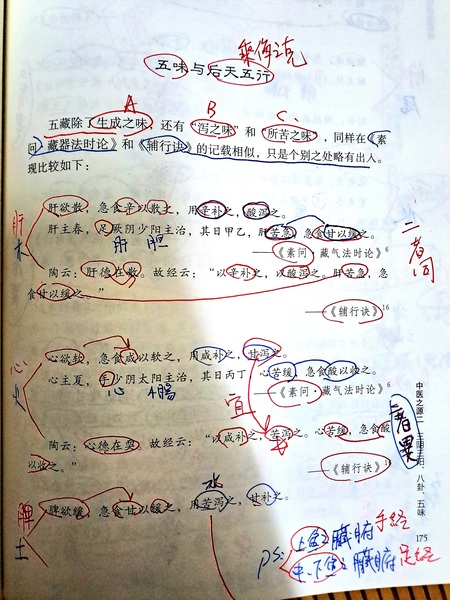 乘侮之克
五味与后天五行
A
B
C
五藏除了“生成之味”，还有“泻之味”和“所苦之味”，同样在《素
问·藏器法时论》和《辅行诀》的记载相似，只是个别之处略有出入。
现比较如下：
肝欲散，急食辛以散之，用辛补之，酸泻之。
肝主春，足厥阴少阳主治，其日甲乙，肝苦急，急食甘以缓之。
肝 胆
——《素问·藏气法时论》6
陶云：肝德在散。故经云：“以辛补之，以酸泻之。肝苦急，急
食甘以缓之。”
——《辅行诀》16
肝
木
二者同
心欲软，急食咸以软之，用咸补之，甘泻之。
心主夏，手少阴太阳主治，其日丙丁，心苦缓，急食酸以收之。
心 小肠
——《素问·藏气法时论》6
陶云：心德在耎。故经云：“以咸补之，苦泻之。心苦缓，急食酸
以收之。”
——《辅行诀》16
心
火
水
脾欲缓，急食甘以缓之，用苦泻之，甘补之。
脾
土
ps:
上焦之臓腑 手经
中、下焦之臓腑 足经
中医之源二
八卦、五味
175